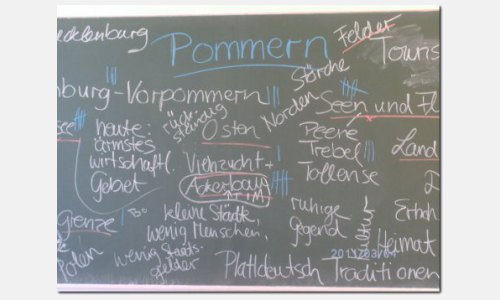 ecklenburg
Pommern
Felder
Touris
Störche
nburg-Vorpommern
Norden
Seen und Fl
see
heute:
ärmstes
wirtschaftl.
Gebiet
rück-
ständig
Osten
Viehzucht +
Ackerbau
Peene
Trebel
Tollense
Land
Grenze
Polen
kleine Städte,
wenig Menschen,
wenig Staats-
gelder
ruhige
Gegend
Kultur
Heimat
Plattdeutsch
Traditionen